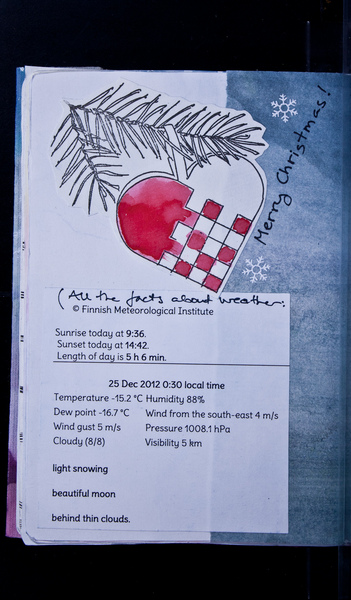 Merry Christmas!
(All the facts about weather:
© Finnish Meteorological Institute
Sunrise today at 9:36.
Sunset today at 14:42.
Length of day is 5 h 6 min.
25 Dec 2012 0:30 local time
Temperature -15.2 °C Humidity 88%
Dew point -16.7 °C Wind from the south-east 4 m/s
Wind gust 5 m/s Pressure 1008.1 hPa
Cloudy (8/8) Visibility 5 km
light snowing
beautiful moon
behind thin clouds.